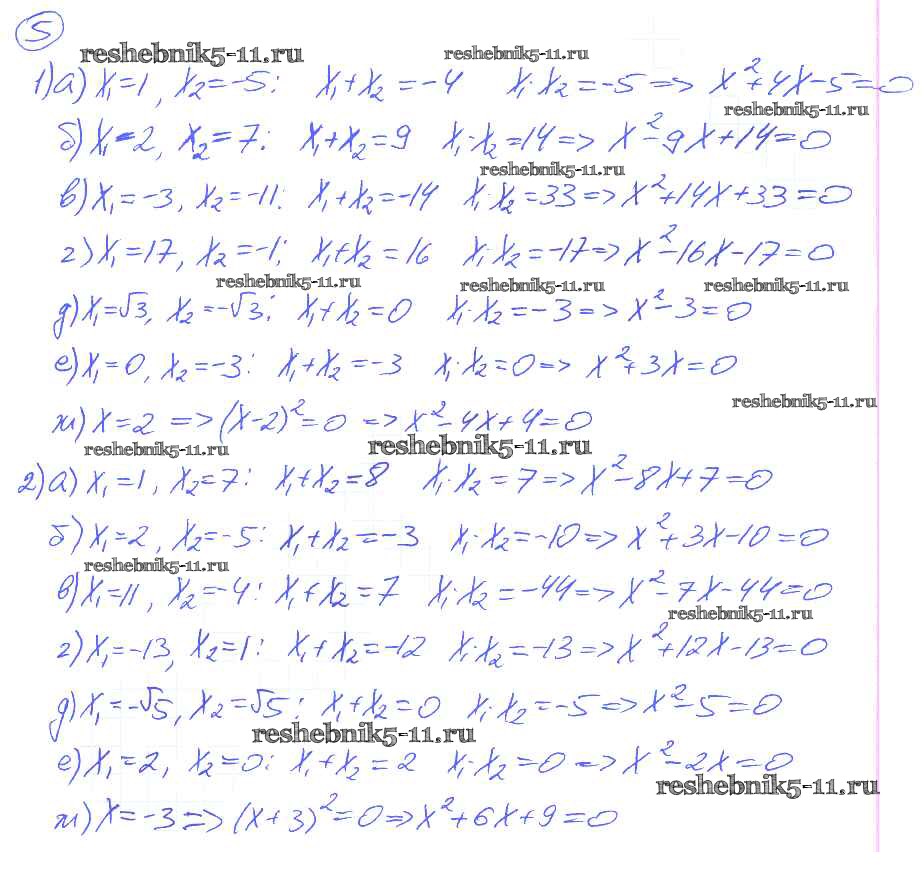 5
reshebnik5-11.ru
reshebnik5-11.ru
1) а) x₁=1, x₂=-5: x₁+x₂=-4 x₁·x₂=-5=> x²+4x-5=0
reshebnik5-11.ru
б) x₁=2, x₂=7: x₁+x₂=9 x₁·x₂=14=> x²-9x+14=0
reshebnik5-11.ru
в) x₁=-3, x₂=-11: x₁+x₂=-14 x₁·x₂=33=> x²+14x+33=0
г) x₁=17, x₂=-1; x₁+x₂=16 x₁·x₂=-17=> x²-16x-17=0
reshebnik5-11.ru
reshebnik5-11.ru
reshebnik5-11.ru
д) x₁=√3, x₂=-√3; x₁+x₂=0 x₁·x₂=-3=> x²-3=0
е) x₁=0, x₂=-3: x₁+x₂=-3 x₁·x₂=0=> x²+3x=0
reshebnik5-11.ru
ж) x=2 => (x-2)²=0 => x²-4x+4=0
reshebnik5-11.ru
reshebnik5-11.ru
2) а) x₁=1, x₂=7: x₁+x₂=8 x₁·x₂=7=> x²-8x+7=0
б) x₁=2, x₂=-5: x₁+x₂=-3 x₁·x₂=-10=> x²+3x-10=0
reshebnik5-11.ru
в) x₁=11, x₂=-4: x₁+x₂=7 x₁·x₂=-44=> x²-7x-44=0
reshebnik5-11.ru
г) x₁=-13, x₂=1: x₁+x₂=-12 x₁·x₂=-13=> x²+12x-13=0
д) x₁=-√5, x₂=√5; x₁+x₂=0 x₁·x₂=-5=> x²-5=0
reshebnik5-11.ru
е) x₁=2, x₂=0: x₁+x₂=2 x₁·x₂=0=> x²-2x=0
reshebnik5-11.ru
ж) x=-3=> (x+3)²=0=> x²+6x+9=0